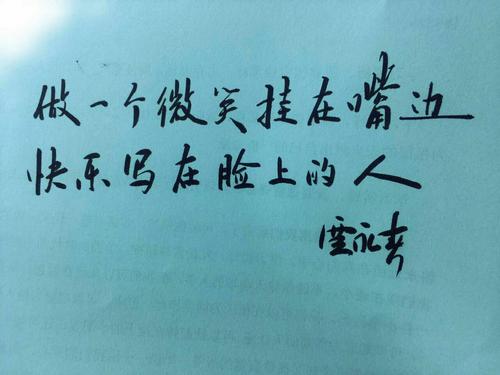 做一个微笑挂在嘴边
快乐写在脸上的人